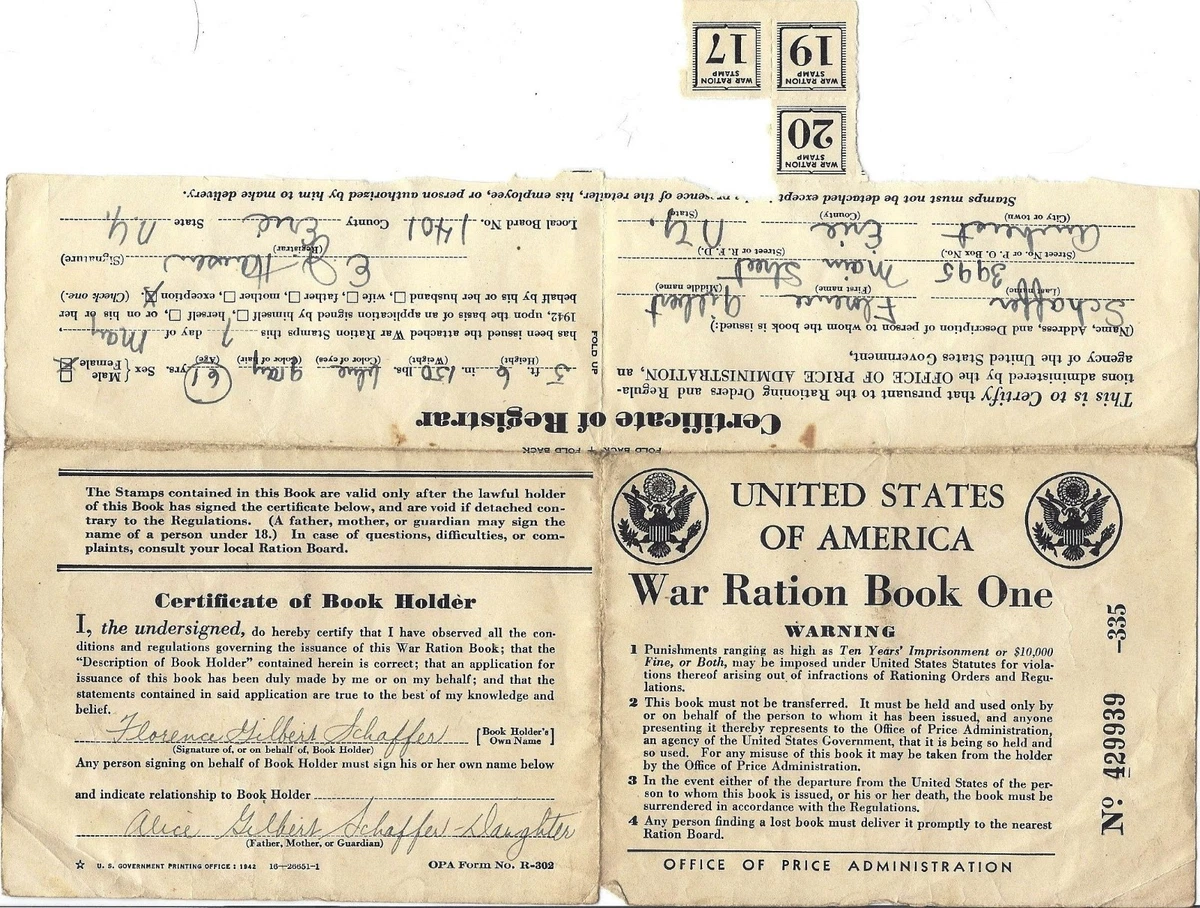 WAR RATION STAMP 17
WAR RATION STAMP 19
WAR RATION STAMP 20
Certificate of Registrar
This is to Certify that pursuant to the Rationing Orders and Regula-
tions administered by the OFFICE OF PRICE ADMINISTRATION, an
agency of the United States Government,
(Name, Address, and Description of person to whom the book is issued:)
Schaffer Florence Gilbert
(Last name) (First name) (Middle name)
3995 Main Street
(Street No. or P. O. Box No.) (Street or R. F. D.)
Amherst Erie N.Y.
(City or town) (County) (State)
5 ft. 6 in. 150 lbs. blue gray 61 yrs. Sex { Male ☐ Female ☒
(Height) (Weight) (Color of eyes) (Color of hair) (Age)
has been issued the attached War Ration Stamps this 7 day of May,
1942, upon the basis of an application signed by himself ☐, herself ☐, or on his or her
behalf by his or her husband ☐, wife ☐, father ☐, mother ☐, exception ☒. (Check one.)
(Signature)
(Registrar)
Local Board No. 1401 County Erie State N.Y.
Stamps must not be detached except in the presence of the retailer, his employee, or person authorized by him to make delivery.
FOLD UP
FOLD BACK + FOLD BACK
The Stamps contained in this Book are valid only after the lawful holder
of this Book has signed the certificate below, and are void if detached con-
trary to the Regulations. (A father, mother, or guardian may sign the
name of a person under 18.) In case of questions, difficulties, or com-
plaints, consult your local Ration Board.
Certificate of Book Holder
I, the undersigned, do hereby certify that I have observed all the con-
ditions and regulations governing the issuance of this War Ration Book; that the
"Description of Book Holder" contained herein is correct; that an application for
issuance of this book has been duly made by me or on my behalf; and that the
statements contained in said application are true to the best of my knowledge and
belief.
Florence Gilbert Schaffer [Book Holder's Own Name]
(Signature of, or on behalf of, Book Holder)
Any person signing on behalf of Book Holder must sign his or her own name below
and indicate relationship to Book Holder
Alice Gilbert Schaffer-Daughter
(Father, Mother, or Guardian)
☆ U. S. GOVERNMENT PRINTING OFFICE : 1942 16—26651-1 OPA Form No. R-302
UNITED STATES
OF AMERICA
War Ration Book One
WARNING
1 Punishments ranging as high as Ten Years' Imprisonment or $10,000
Fine, or Both, may be imposed under United States Statutes for viola-
tions thereof arising out of infractions of Rationing Orders and Regu-
lations.
2 This book must not be transferred. It must be held and used only by
or on behalf of the person to whom it has been issued, and anyone
presenting it thereby represents to the Office of Price Administration,
an agency of the United States Government, that it is being so held and
so used. For any misuse of this book it may be taken from the holder
by the Office of Price Administration.
3 In the event either of the departure from the United States of the per-
son to whom this book is issued, or his or her death, the book must be
surrendered in accordance with the Regulations.
4 Any person finding a lost book must deliver it promptly to the nearest
Ration Board.
OFFICE OF PRICE ADMINISTRATION
No 429939 -335